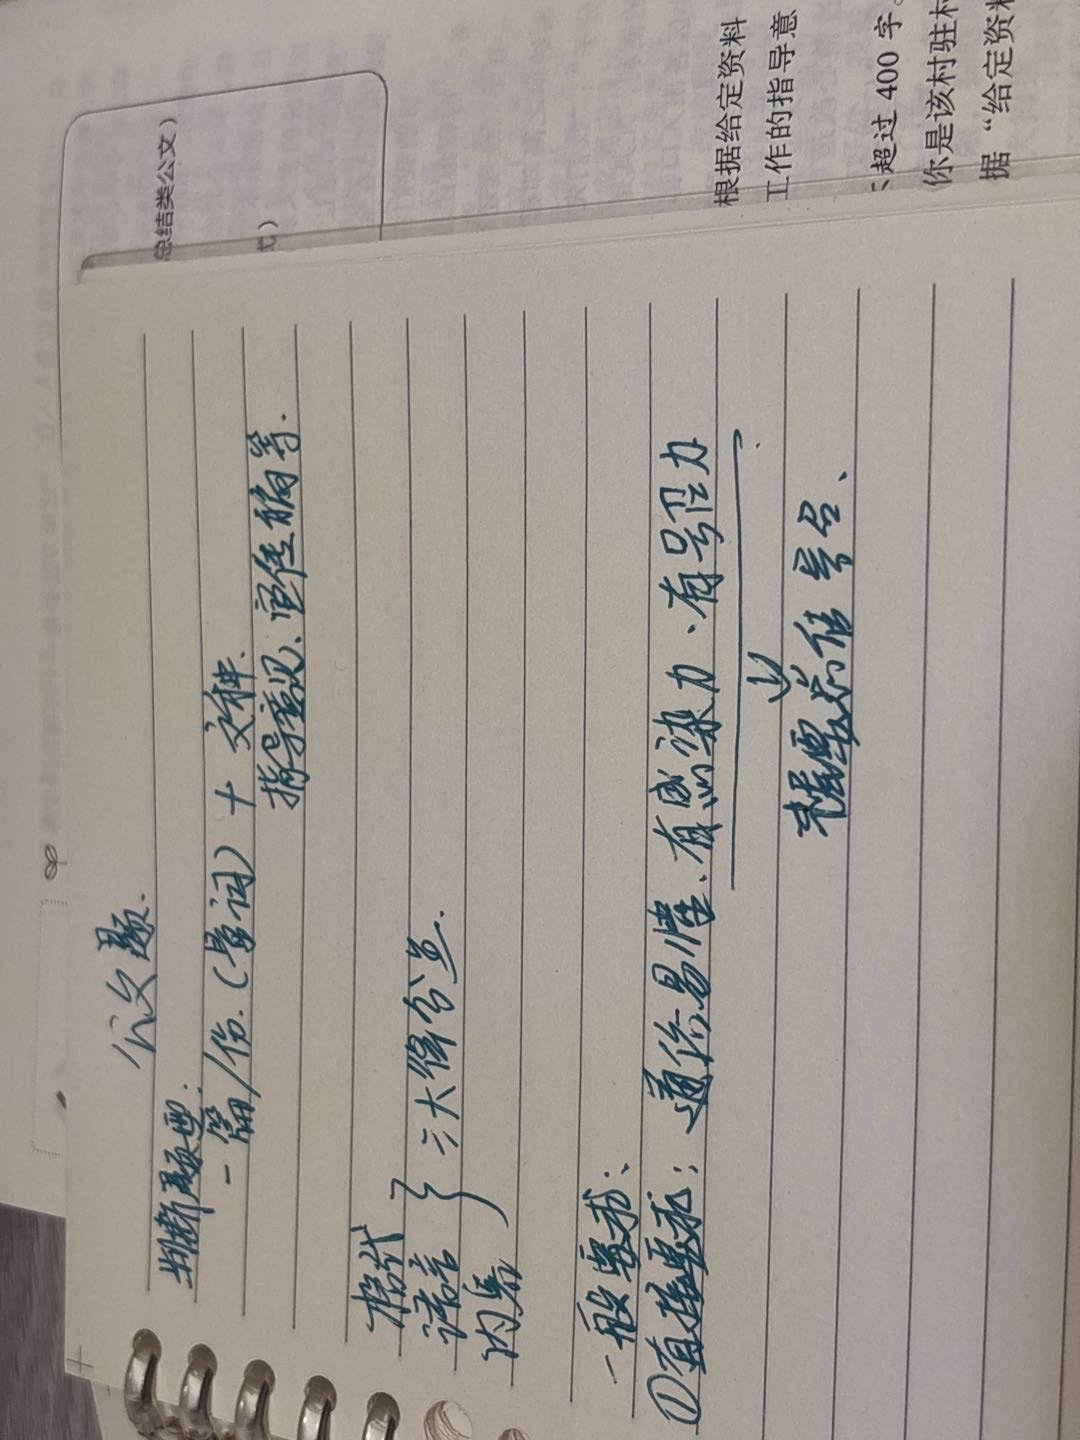 公文题.
判断题型:
一篇/份.(量词) + 文种.
指导意见、宣传稿等.
格式
语言
内容
三大得分点.
一般要求:
①直接要求: 通俗易懂、有感染力、有号召力
↓
号召、
总结类公文)
式)
根据给定资料
工作的指导意
超过 400 字。
你是该村驻村
据“给定资料